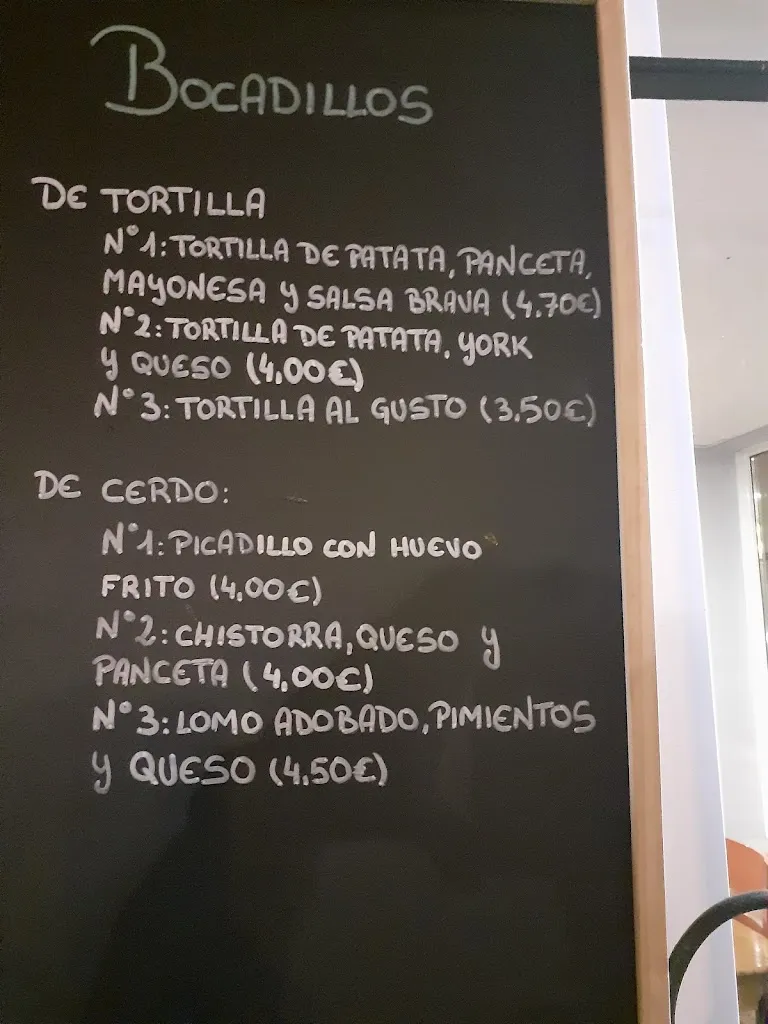 BOCADILLOS
DE TORTILLA
N°1: TORTILLA DE PATATA, PANCETA,
MAYONESA Y SALSA BRAVA (4.70€)
N°2: TORTILLA DE PATATA, YORK
Y QUESO (4,00€)
N°3: TORTILLA AL GUSTO (3.50€)
DE CERDO:
N°1: PICADILLO CON HUEVO
FRITO (4,00€)
N°2: CHISTORRA, QUESO Y
PANCETA (4,00€)
N°3: LOMO ADOBADO, PIMIENTOS
Y QUESO (4.50€)